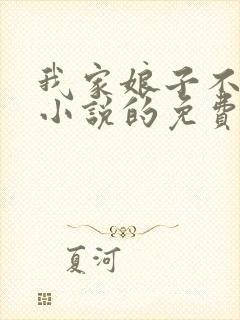 我家娘子不
小说的免费
夏河